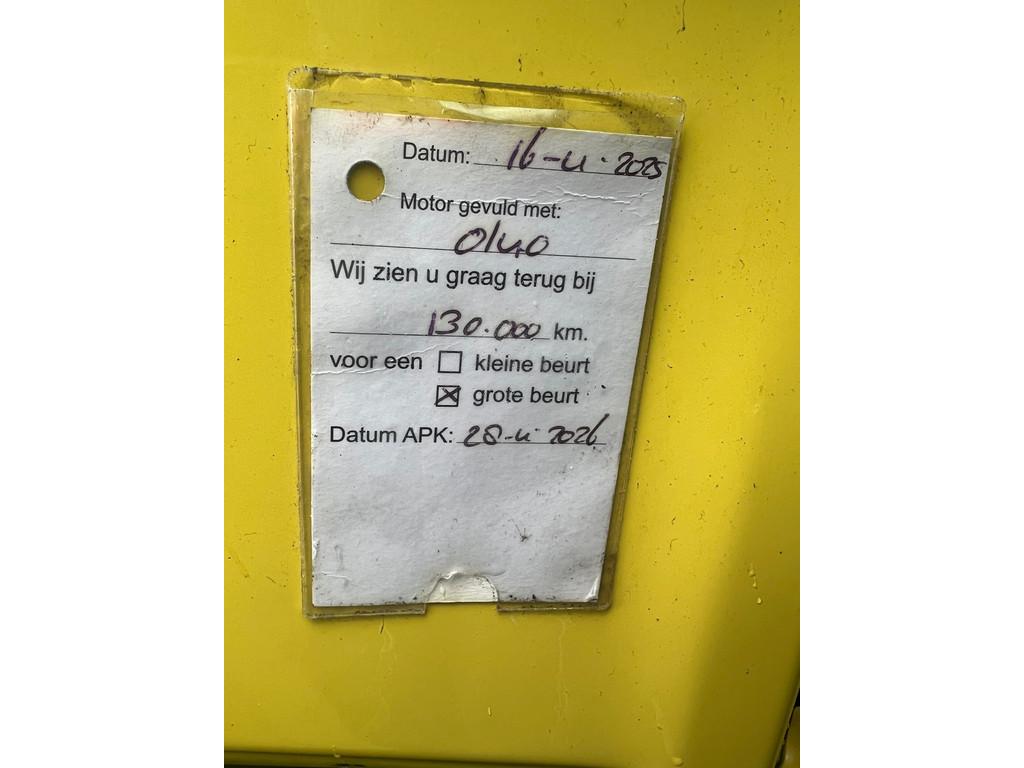 Datum: 16-4-2025
Motor gevuld met:
0/40
Wij zien u graag terug bij
130.000 km.
voor een ☐ kleine beurt
☒ grote beurt
Datum APK: 28-4-2026